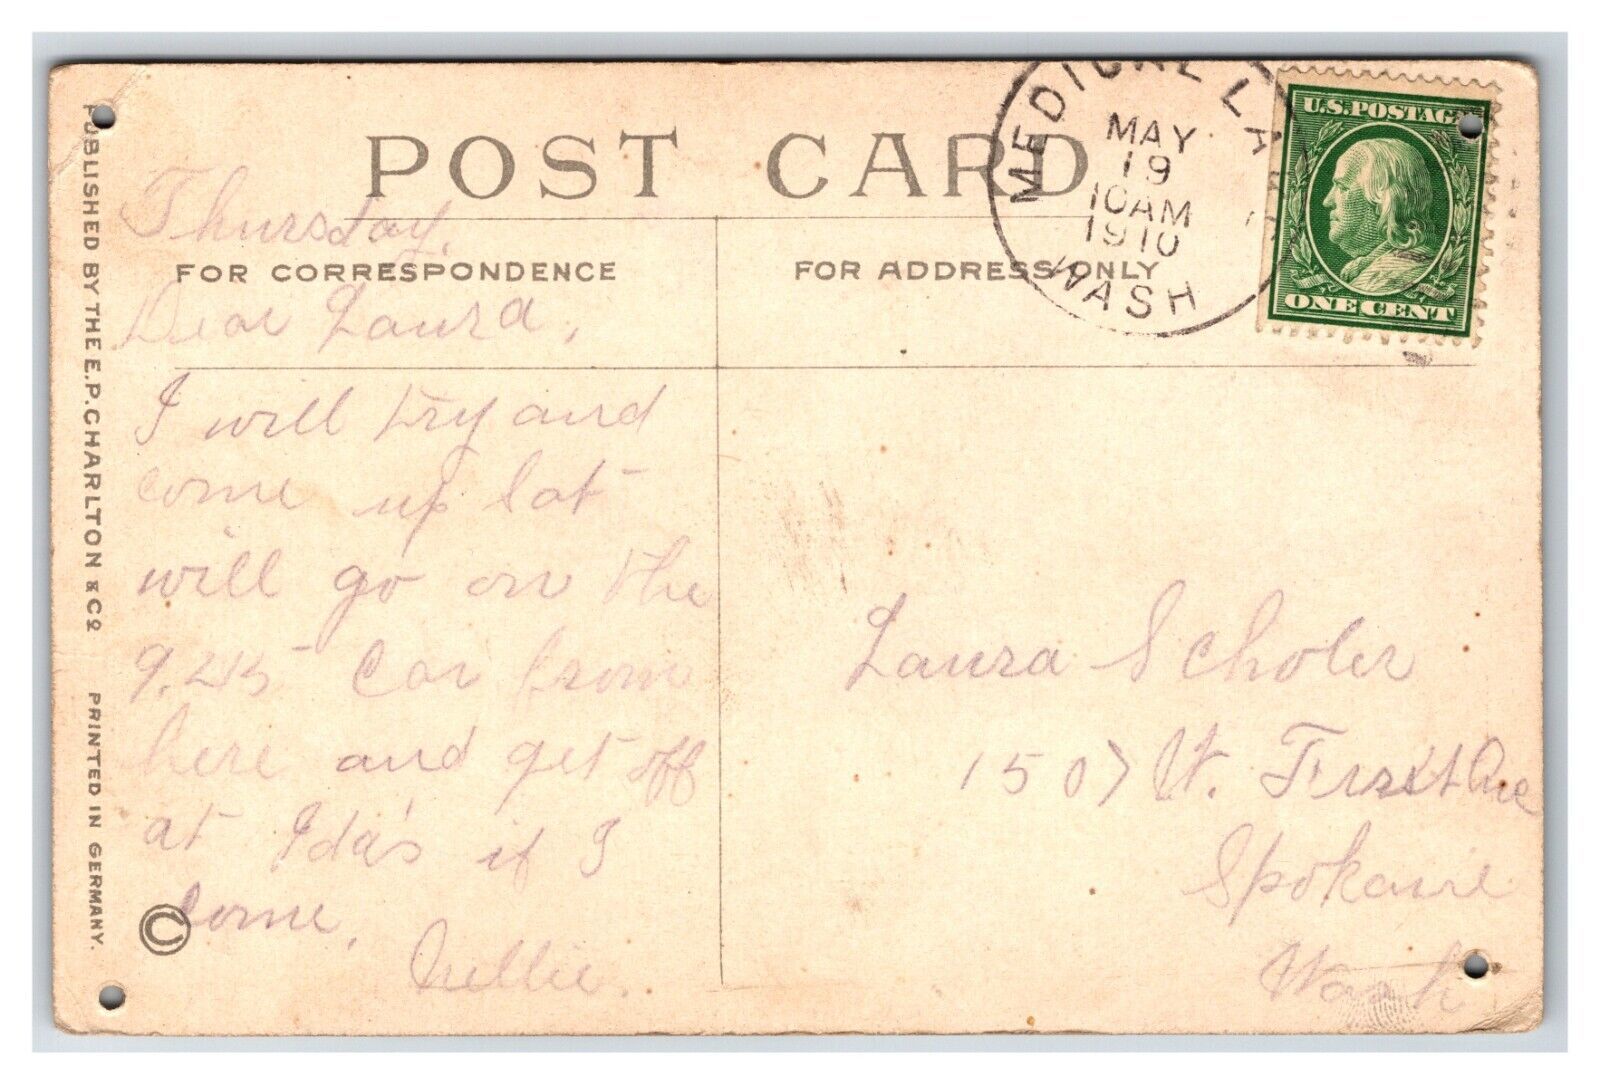 POST CARD
FOR CORRESPONDENCE
FOR ADDRESS ONLY
PUBLISHED BY THE E.P. CHARLTON & CO. PRINTED IN GERMANY.
MEDICAL LAKE
MAY
19
10AM
1910
WASH
U.S. POSTAGE
ONE CENT
Thursday.
Dear Laura,
I will try and
come up Sat
will go on the
car from
here and get off
at Ida's if I
come.
Nellie.
©
Laura Scholer
1507 W. First Ave
Spokane
Wash